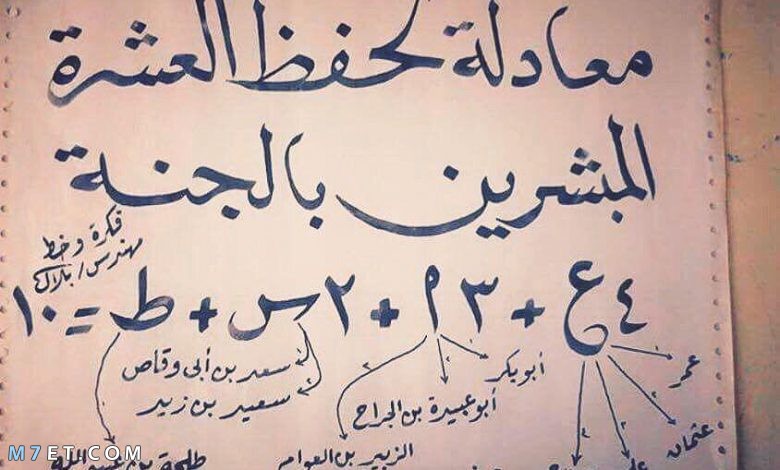 معادلة لحفظ العشرة
المبشرين بالجنة
فكرة وخط
مهندس/بلال
٤ع + ٣أ + ٢س + ط = ١٠
عمر
عثمان
علي
أبوبكر
أبوعبيدة بن الجراح
الزبير بن العوام
سعد بن أبى وقاص
سعيد بن زيد
طلحة بن عبيد الله
M7ET.COM